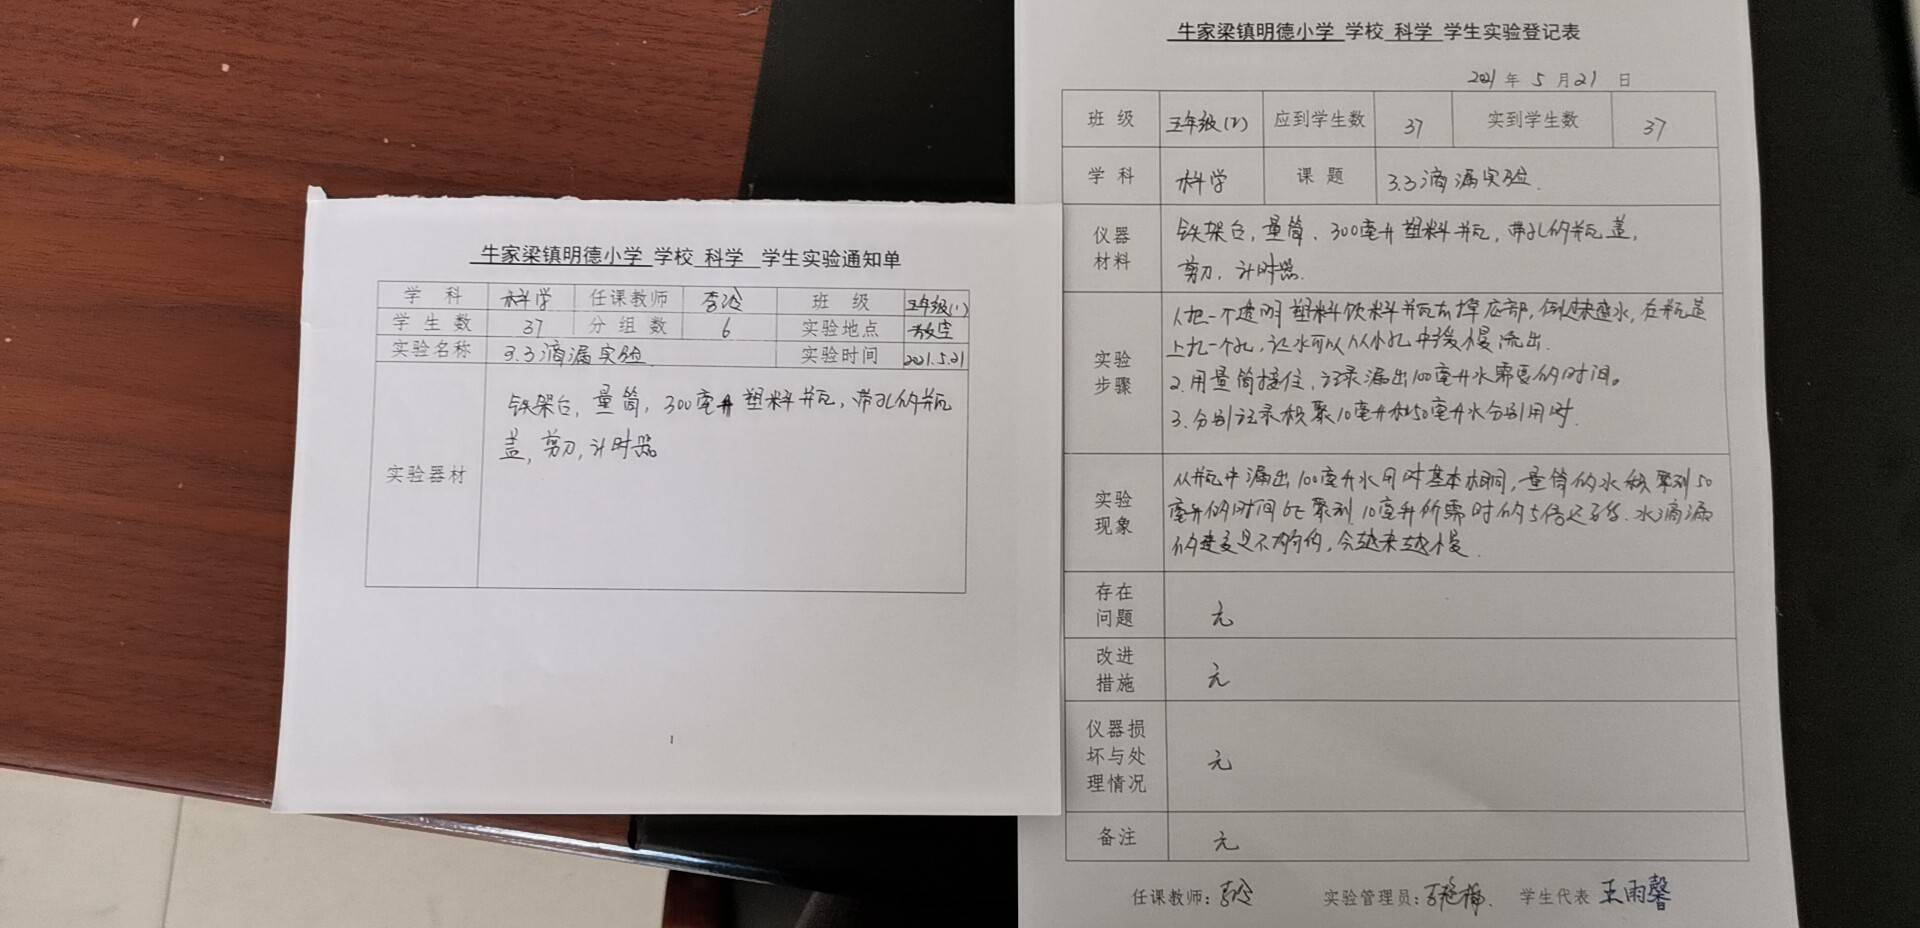 牛家梁镇明德小学 学校 科学 学生实验通知单
学 科 科学 任课教师 李玲 班 级 五年级(1)
学 生 数 37 分 组 数 6 实验地点 教室
实验名称 3.3滴漏实验 实验时间 2021.5.21
实验器材
铁架台, 量筒, 300毫升塑料瓶, 带孔的瓶
盖, 剪刀, 计时器
1
牛家梁镇明德小学 学校 科学 学生实验登记表
2021 年 5 月 21 日
班 级 五年级(1) 应到学生数 37 实到学生数 37
学 科 科学 课 题 3.3滴漏实验.
仪器
材料
铁架台, 量筒、300毫升塑料瓶, 带孔的瓶盖,
剪刀, 计时器.
实验
步骤
1.把一个透明塑料饮料瓶去掉底部, 倒过来盛水, 在瓶盖
上扎一个孔, 让水可以从小孔中缓慢流出.
2.用量筒接住, 记录漏出100毫升水需要的时间。
3.分别记录积聚10毫升和50毫升水分别用时.
实验
现象
从瓶中漏出100毫升水用时基本相同, 量筒的水积聚到50
毫升的时间比聚到10毫升所需时的5倍还多些. 水滴漏
的速度是不均匀的, 会越来越慢.
存在
问题
无
改进
措施
无
仪器损
坏与处
理情况
无
备注 无
任课教师: 李玲 实验管理员: 学生代表 王雨馨